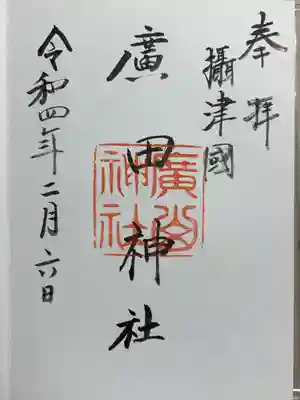 奉拝
攝津國
廣田神社
廣田神社
令和四年二月六日